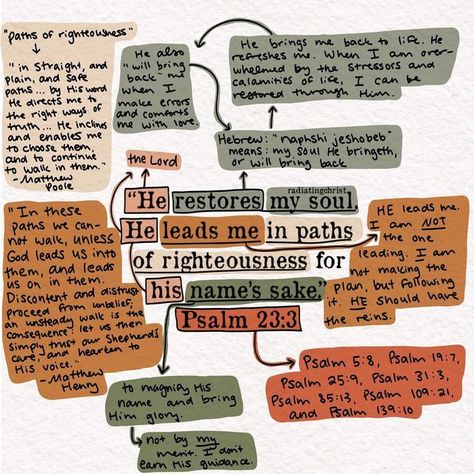 "paths of righteousness"
"in straight, and
plain, and safe
paths ... by His word
He directs me to
the right ways of
truth ... He inclines
and enables me
to choose them,
and to continue
to walk in them."
-Matthew
Poole
He also
"will bring
back" me
when I
make errors
and comforts
me with love
He brings me back to life. He
refreshes me. When I am over-
whelmed by the stressors and
calamities of life, I can be
restored through Him.
Hebrew: "naphshi jeshobeb"
means: my soul He bringeth,
or will bring back
the Lord
radiatingchrist
"He restores my soul.
He leads me in paths
of righteousness for
his name's sake."
Psalm 23:3
"In these
paths we can-
not walk, unless
God leads us into
them, and leads
us on in them.
Discontent and distrust
proceed from unbelief;
an unsteady walk is the
consequence: let us then
simply trust our Shepherd's
care, and hearken to
His voice."
-Matthew
Henry
HE leads me.
I am NOT
the one
leading. I am
not making the
plan, but following
it. HE should have
the reins.
to magnify His
name and bring
Him glory.
not by my
merit. I don't
earn His guidance.
Psalm 5:8, Psalm 19:7,
Psalm 25:9, Psalm 31:3,
Psalm 85:13, Psalm 109:21,
and Psalm 139:10